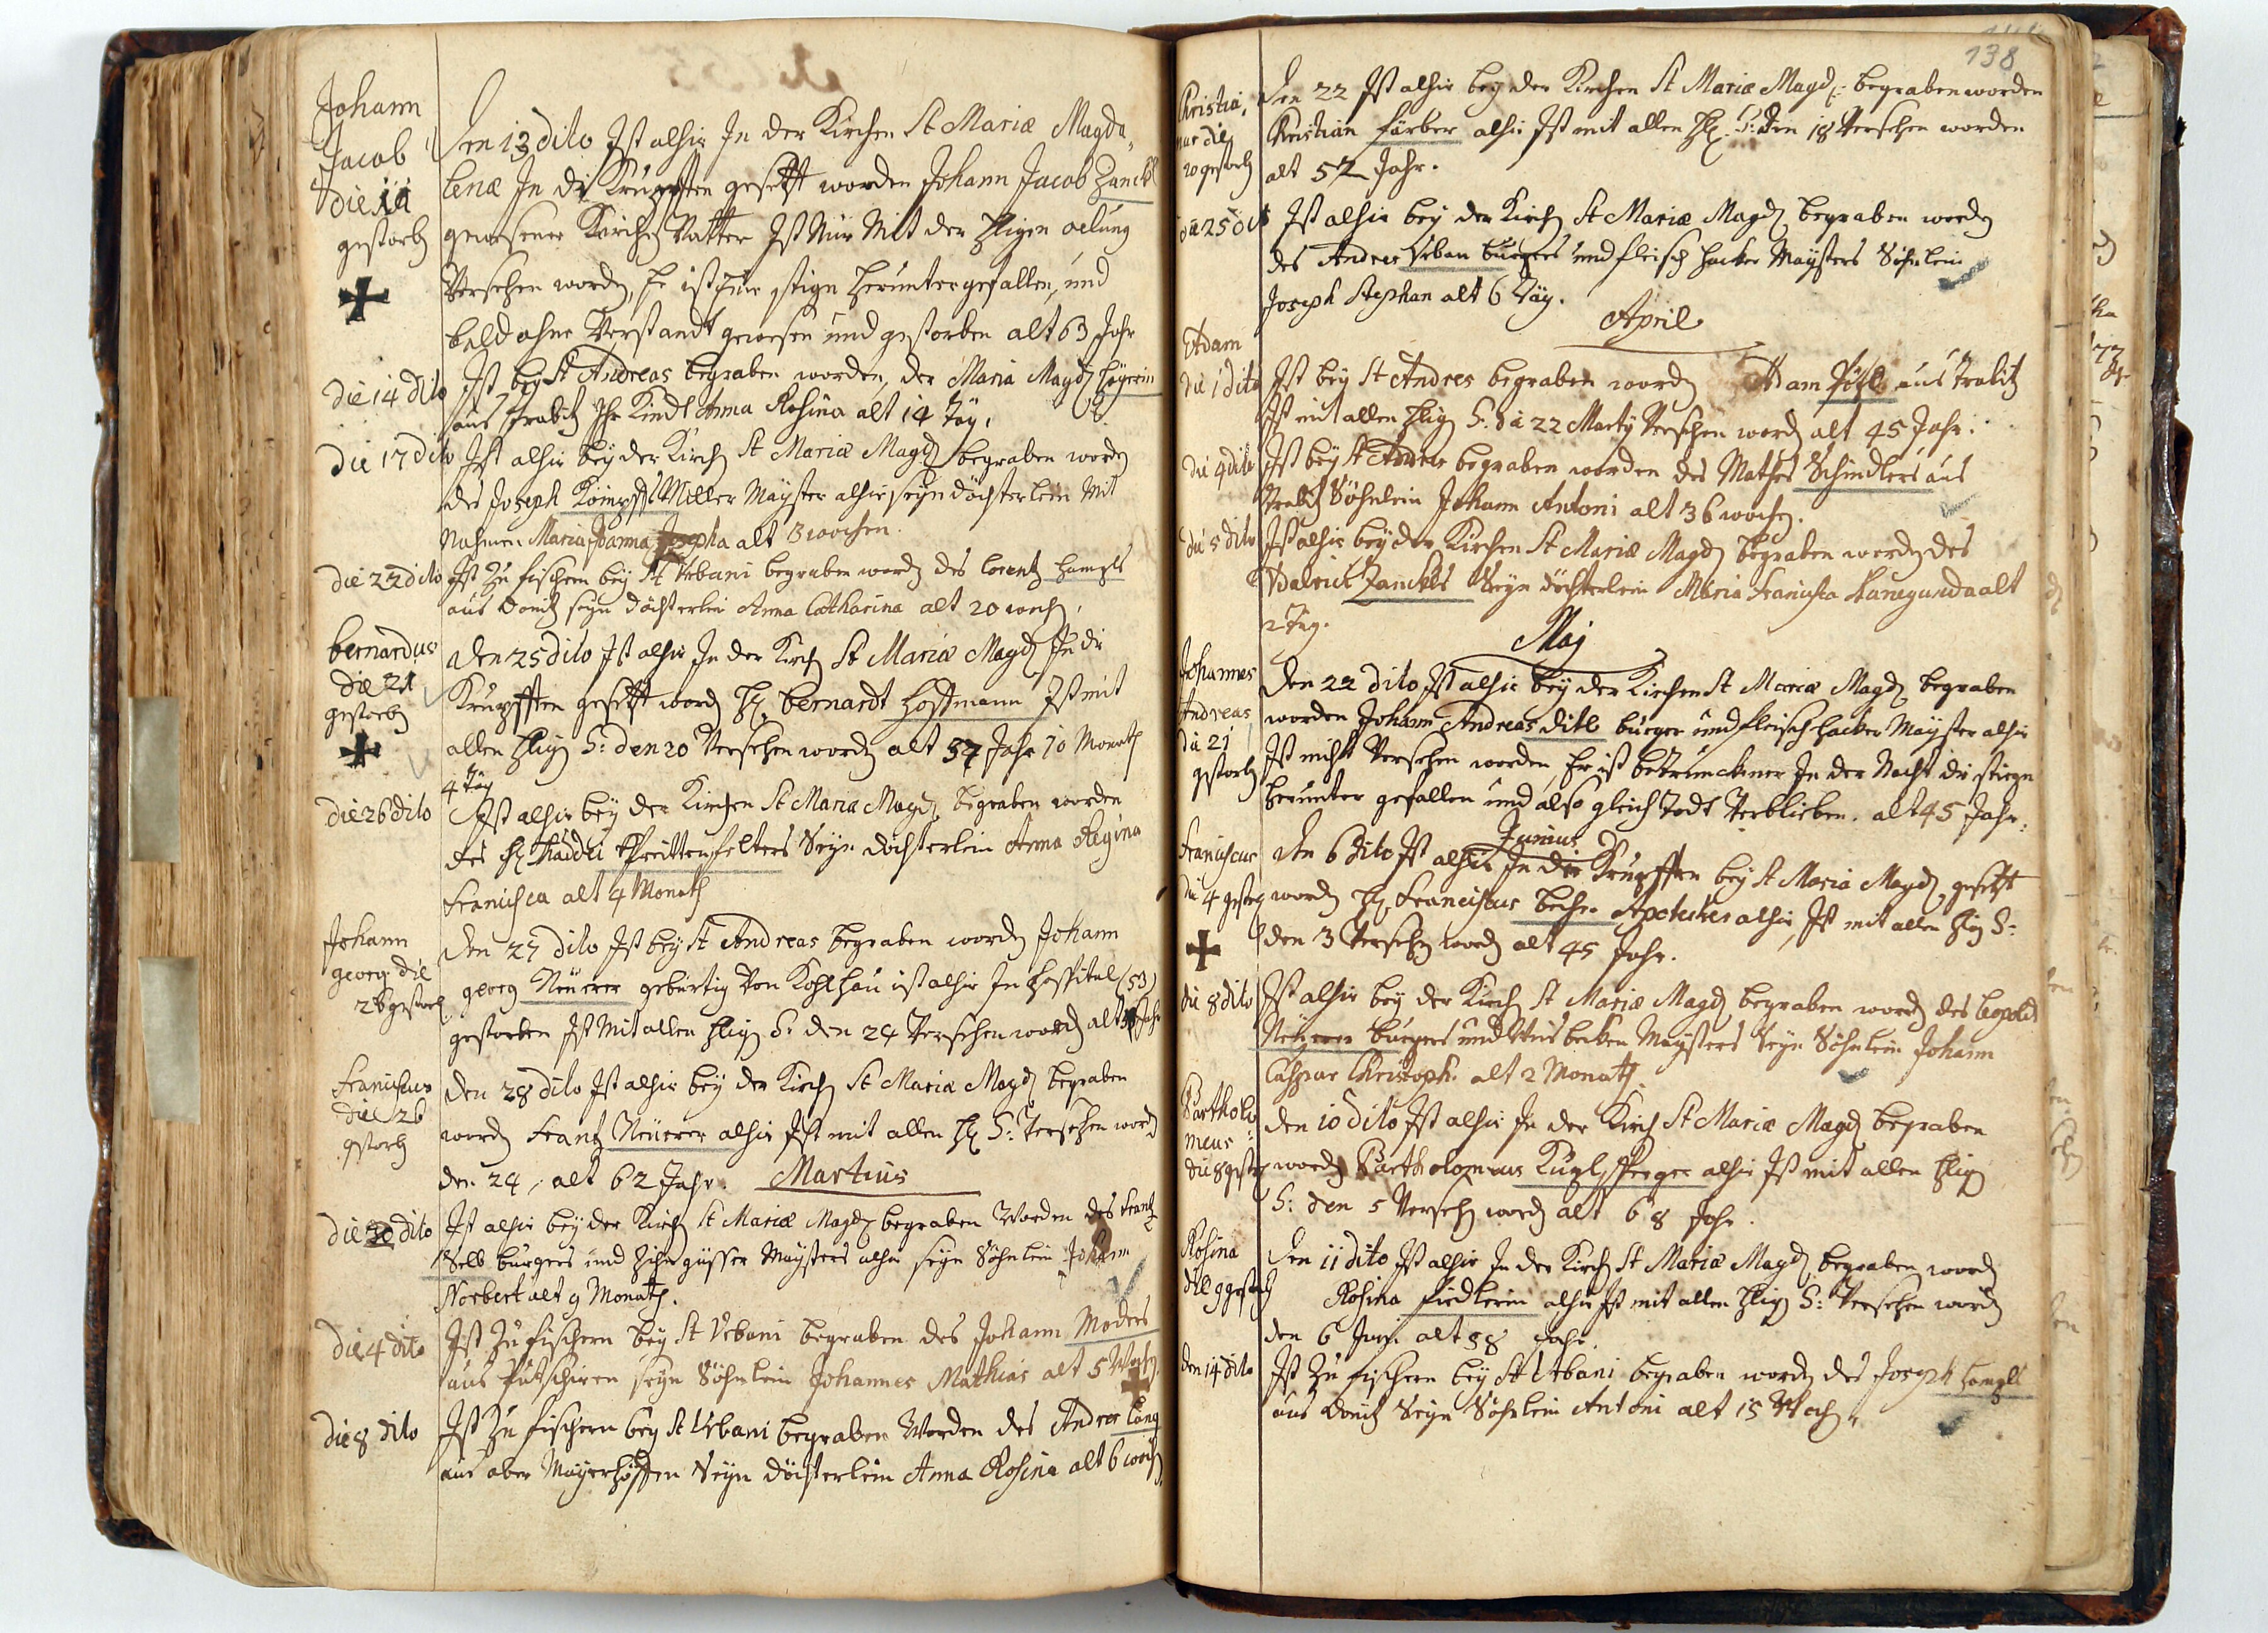 Johann
Jacob
die 11
gestorb
Den 13 dito Ist alhir In der Kirchen St Mariæ Magda-
lenæ In di Krupfften gesetzt worden Johann Jacob Zanckl
gewesener Kirchen Vatter Ist Nur Mit der Hligen oelung
Versehen worden, Er ist Eine stigen heruntergefallen, und
bald ohne Verstandt gewesen und gestorben alt 63 Jahr
die 14 dito Ist bey St Andreas begraben worden, der Maria Magd
aus Ihr Kindl Anna Rosina alt 14 Täg.
die 17 dito Ist alhir bey der Kirch St Mariæ Magd begraben worden
des Joseph Miller Mayster alhir seyn döchterlein Mit
Nahmen Maria Joanna Josepha alt 3 wochen.
die 22 dito Ist Zu fischern bey St Urbani begraben word des Lorentz Hampls
aus Donitz seyn döchterlein Anna Catharina alt 20 woch.
bernardus
die 21
gestorb
Den 25 dito Ist alhir In der Kirch St Mariæ Magd In di
Krupfften gesetzt word H. bernardt Hoffmann Ist mit
allen Hlig S: den 20 Versehen word alt 57 Jahr 10 Monath
4 Täg
die 26 dito Ist alhir bey der Kirchen St Maria Magd begraben worden
des H. Seyn döchterlein Anna Regina
Francisca alt 4 Monath
Johann
georg die
26 gestorb
Den 27 dito Ist bey St Andreas begraben word Johann
georg Neuerer gebürtig Von Kohlhau ist alhir In Hospital (53)
gestorben Ist Mit allen Hlig S: den 24 Versehen word alt Jahr
Franciscus
die 26
gstorb
Den 28 dito Ist alhir bey der Kirch St Mariæ Magd begraben
word Frantz Neuerer alhir Ist mit allen H S: Versehen word
den 24, alt 62 Jahr. Martius
die 30 dito Ist alhir bey der Kirch St Mariæ Magd begraben Worden des Frantz
Selb burgers und Zihngüsser Maysters alhir seyn Söhnlein Johann
Norbert alt 9 Monath.
die 4 dito Ist Zu fischern bey St Urbani begraben des Johann Moders
aus Putschiren seyn Söhnlein Johannes Mathias alt 5 Woch
die 8 dito Ist Zu fischern bey St Urbani begraben Worden des Andres Lang
aus ober Mayerhöffen Seyn döchterlein Anna Rosina alt 6 woch
138
Christia-
nus die
20 gestorb
Den 22 Ist alhir bey der Kirchen St Mariæ Magd: begraben worden
Kristian färber alhir Ist mit allen H. S: den 18 Versehen worden
alt 52 Jahr.
die 25 dito Ist alhir bey der Kirch St Mariæ Magd begraben worden
des Andres Urban burgers und fleischhacker Maysters Söhnlein
Joseph Stephan alt 6 Täg.
April
Adam
die 1 dito Ist bey St Andres begraben word Adam aus
Ist mit allen Hlig S. die 22 Marty Versehen word alt 45 Jahr.
die 4 dito Ist bey St Andres begraben worden des Mathes Schindlers aus
Söhnlein Johann Antoni alt 36 woch.
die 5 dito Ist alhir bey der Kirchen St Mariæ Magd begraben worden des
Udalrich Zanckls Seyn döchterlein Maria Francisca Kunegunda alt
2 Täg.
Maj
Johannes
Andreas
die 21
gstorb
Den 22 dito Ist alhir bey der Kirchen St Mariæ Magd begraben
worden Johann Andreas Ditl burger und fleischhacker Mayster alhir
Ist nicht Versehen worden, Er ist betrunckener In der Nacht die stiegn
herunter gefallen und also gleich Todt Verblieben. alt 45 Jahr.
Junius
Franciscus
die 4 gstorb
Den 6 dito Ist alhir In der Krupfften bey St Maria Magd gesetzt
word H. Franciscus becher Apotecker alhir, Ist mit allen Hlig S:
den 3 Verseh word alt 45 Jahr.
die 8 dito Ist alhir bey der Kirch St Mariæ Magd begraben word des Leopold
Neuerer burgers und Weisbecken Maysters Seyn Söhnlein Johann
Caspar Christoph. alt 2 Monath.
Bartholo-
meus
die 8 gestorb
Den 10 dito Ist alhir In der Kirch St Mariæ Magd begraben
word Bartholomeus alhir Ist mit allen Hlig
S: den 5 Verseh word alt 68 Jahr.
Rosina
die 9 gestorb
Den 11 dito Ist alhir In der Kirch St Mariæ Magd begraben word
Rosina Fiedlerin alhir Ist mit allen Hlig S: Versehen word
den 6 Juny alt 58 Jahr.
Den 14 dito Ist Zu fischern bey St Urbani begraben word des Joseph Hampls
aus Donitz Seyn Söhnlein Antoni alt 15 Woch.